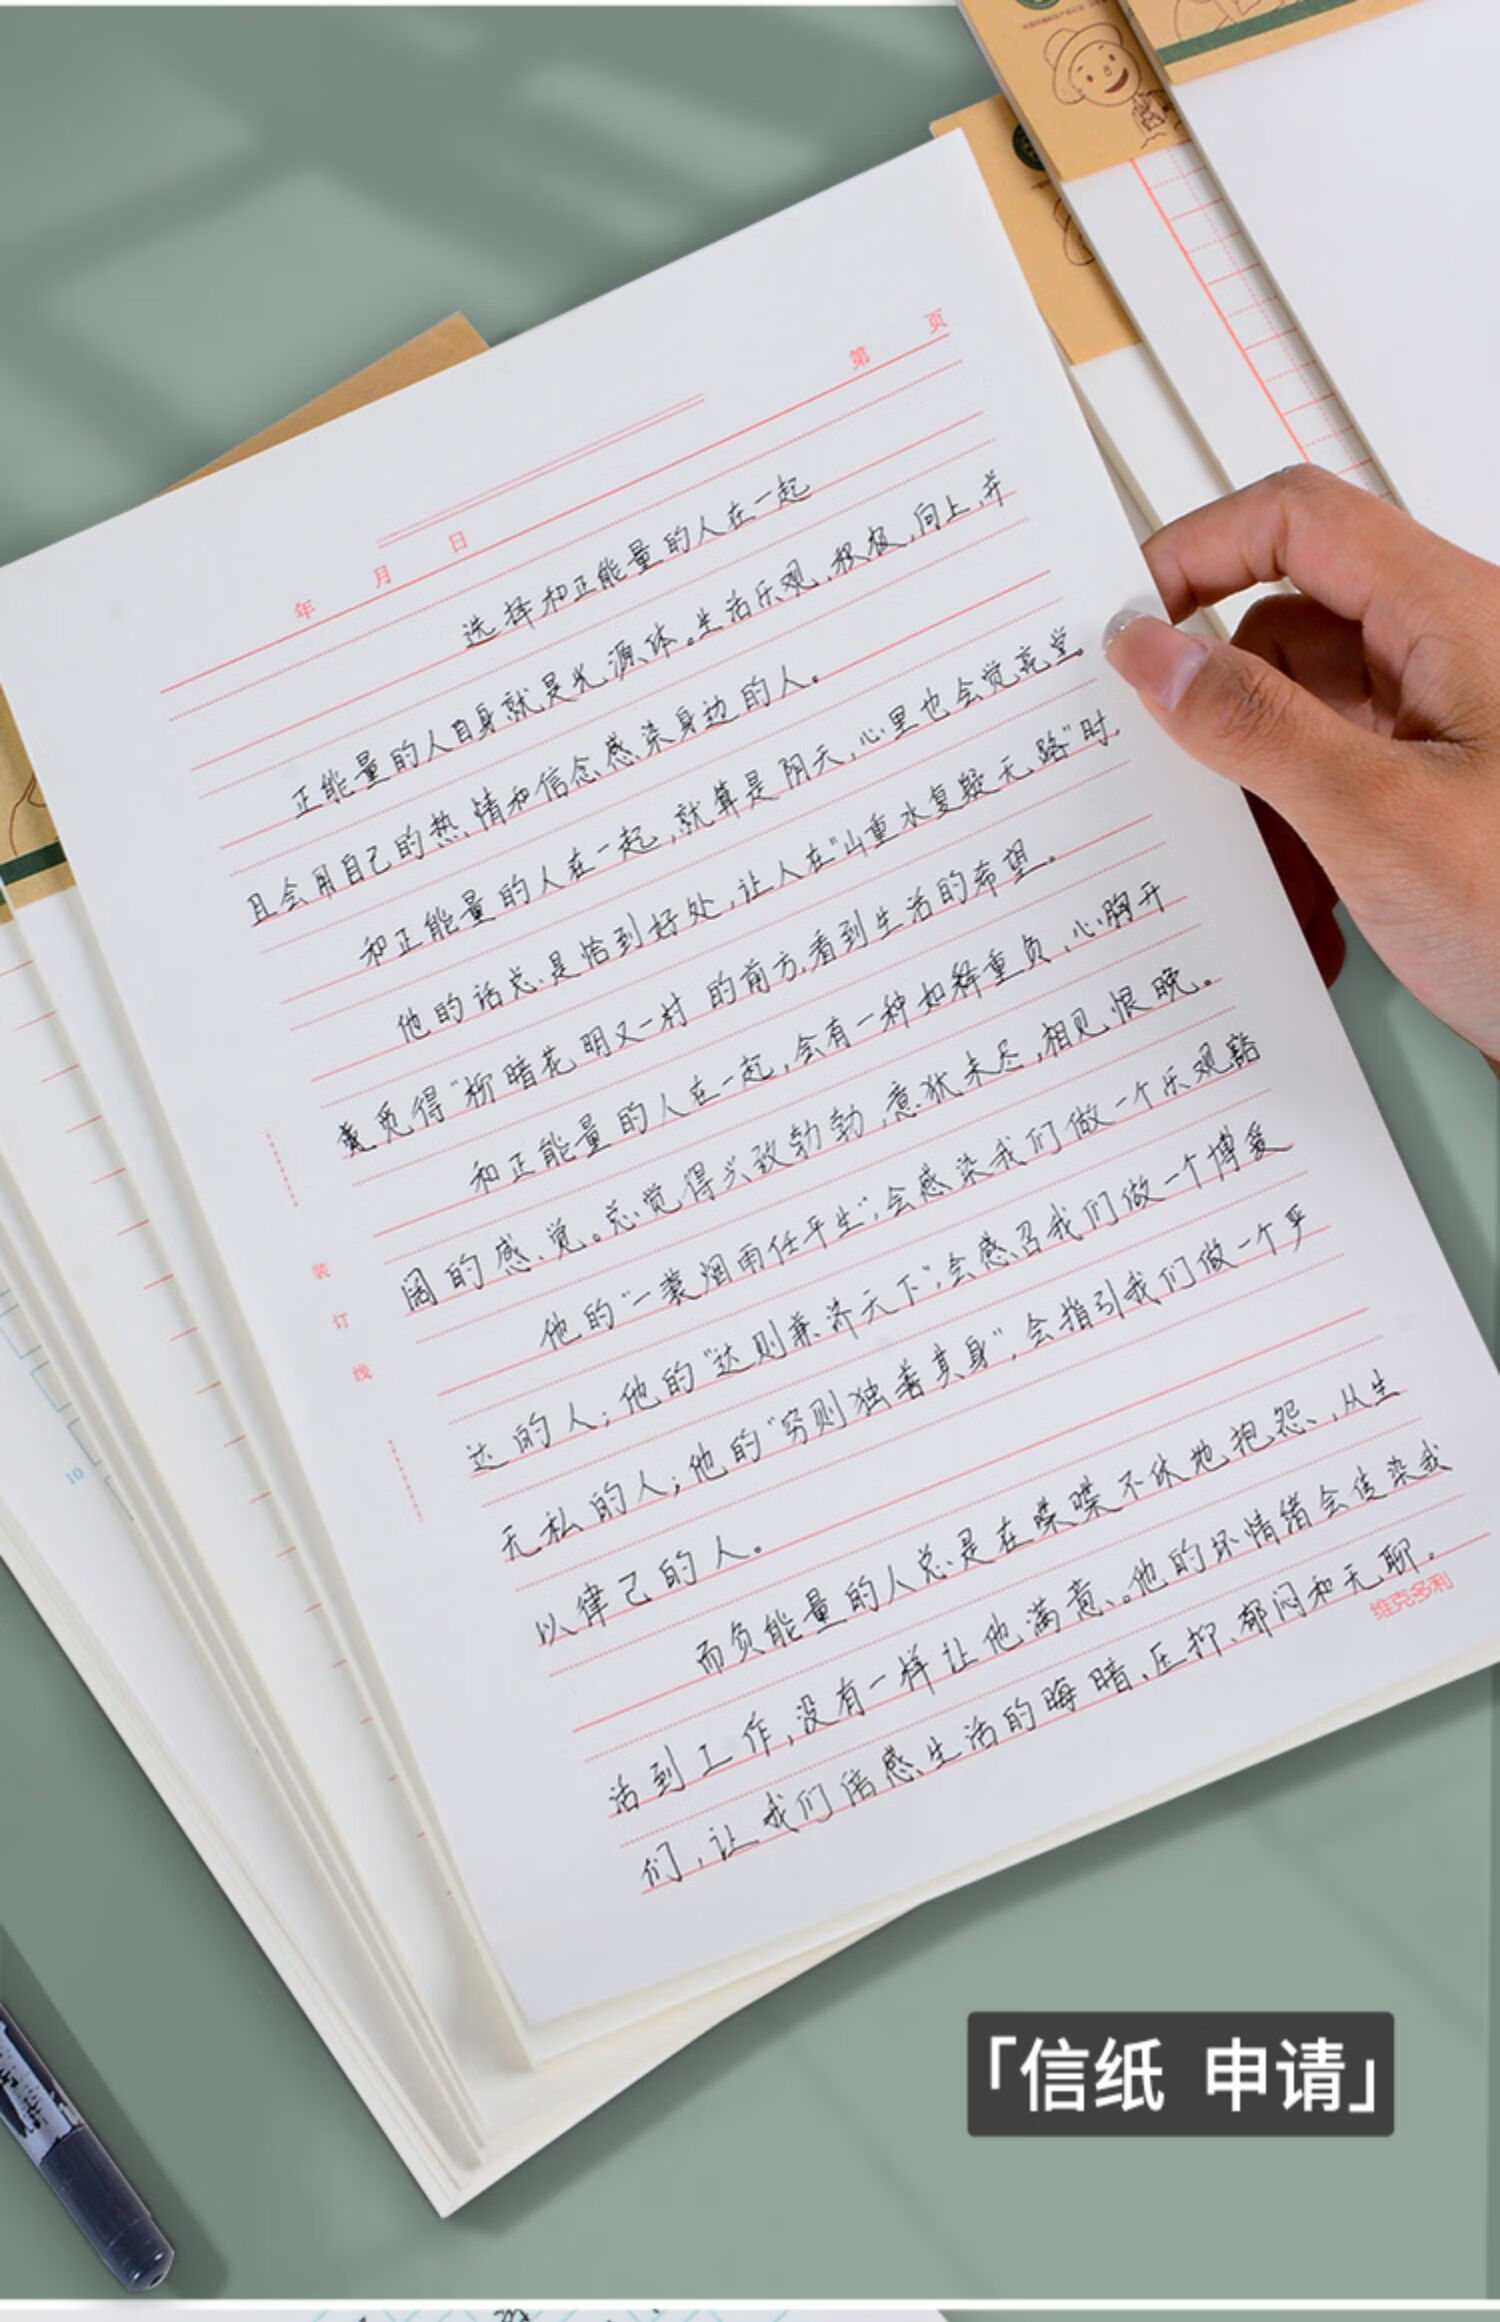 第 页
年 月 日
选择和正能量的人在一起
正能量的人自身就是光源体。生活乐观、积极、向上,并
且会用自己的热情和信念感染身边的人。
和正能量的人在一起,就算是阴天,心里也会觉亮堂。
他的话总是恰到好处,让人在“山重水复疑无路”时,
觅得“柳暗花明又一村 的前方,看到生活的希望。
和正能量的人在一起,会有一种如释重负、心胸开
阔的感觉。总觉得兴致勃勃,意犹未尽,相见恨晚。
他的“一蓑烟雨任平生”,会感染我们做一个乐观豁
达的人;他的“达则兼济天下”,会感召我们做一个博爱
无私的人;他的“穷则独善其身”,会指引我们做一个严
以律己的人。
而负能量的人总是在喋喋不休地抱怨,从生
活到工作,没有一样让他满意。他的坏情绪会传染我
们,让我们倍感生活的晦暗、压抑、郁闷和无聊。
装 订 线
维克多利
10
「信纸 申请」